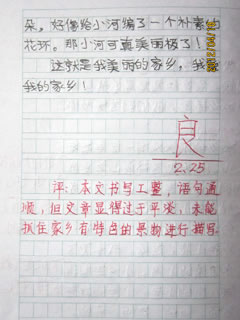 朵。好像给小河编了一个朴素
花环。那小河可真美丽极了！
这就是我美丽的家乡，我
我的家乡！
良
2.25
评：本文书写工整，语句通
顺，但文章显得过于平淡，未能
抓住家乡有特色的景物进行描写